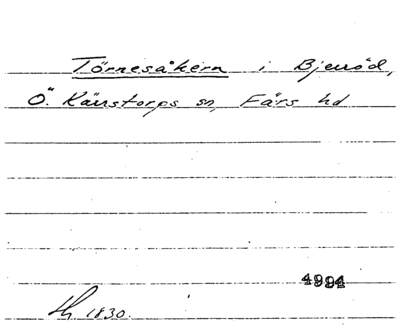 Törnesåkern i Bjerröd,
Ö. Kärrstorps sn, Färs hd
4994
1830.